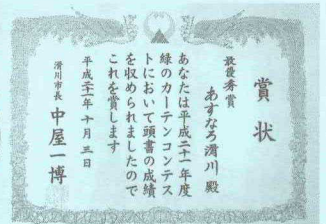 賞状
最優秀賞
あすなろ滑川 殿
あなたは平成二十一年度
緑のカーテンコンテス
トにおいて頭書の成績
を収められましたので
これを賞します
平成二十一年十月三日
滑川市長 中屋一博